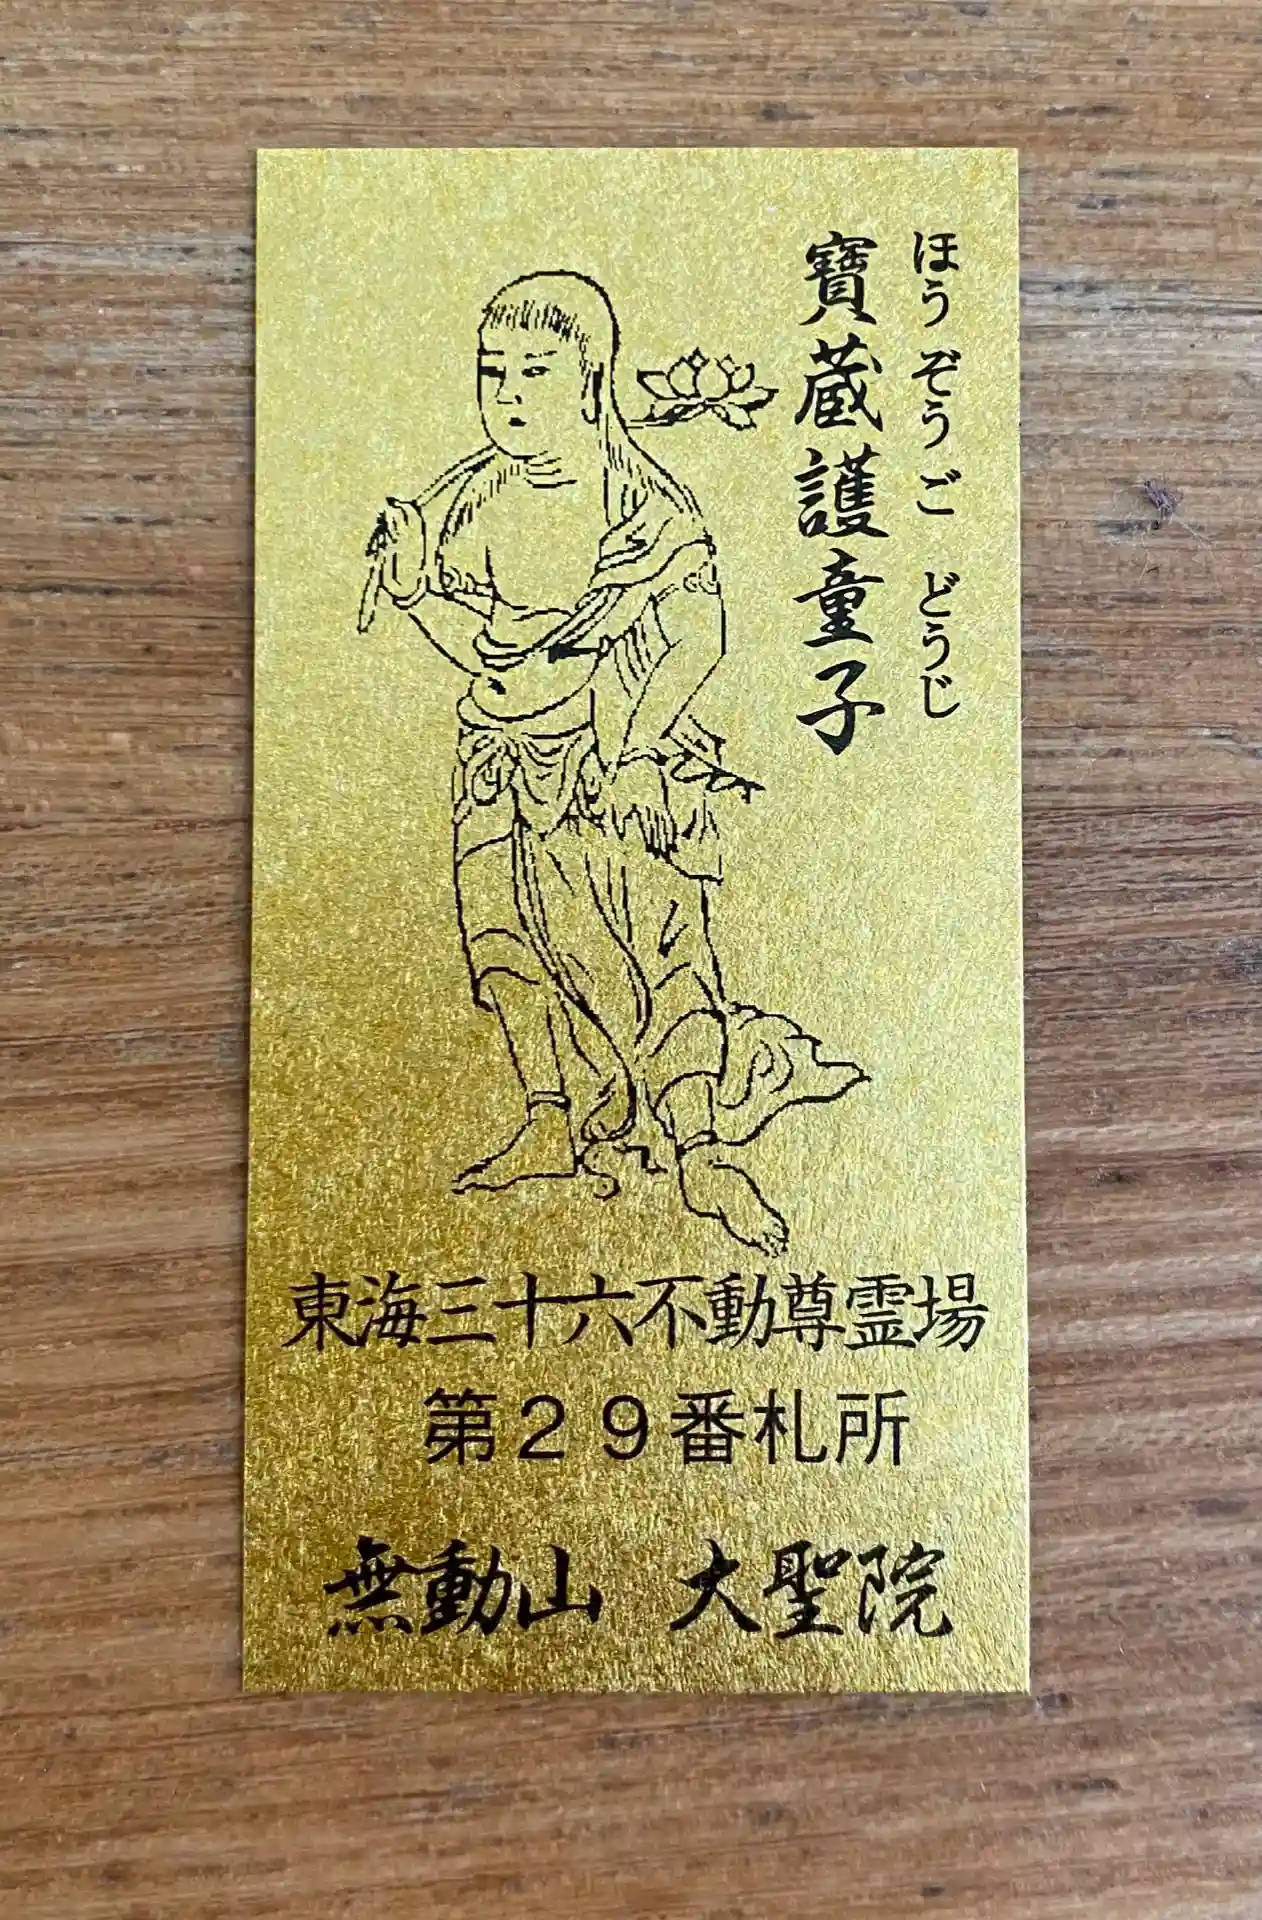 ほうぞうご どうじ
寶蔵護童子
東海三十六不動尊霊場
第２９番札所
無動山 大聖院